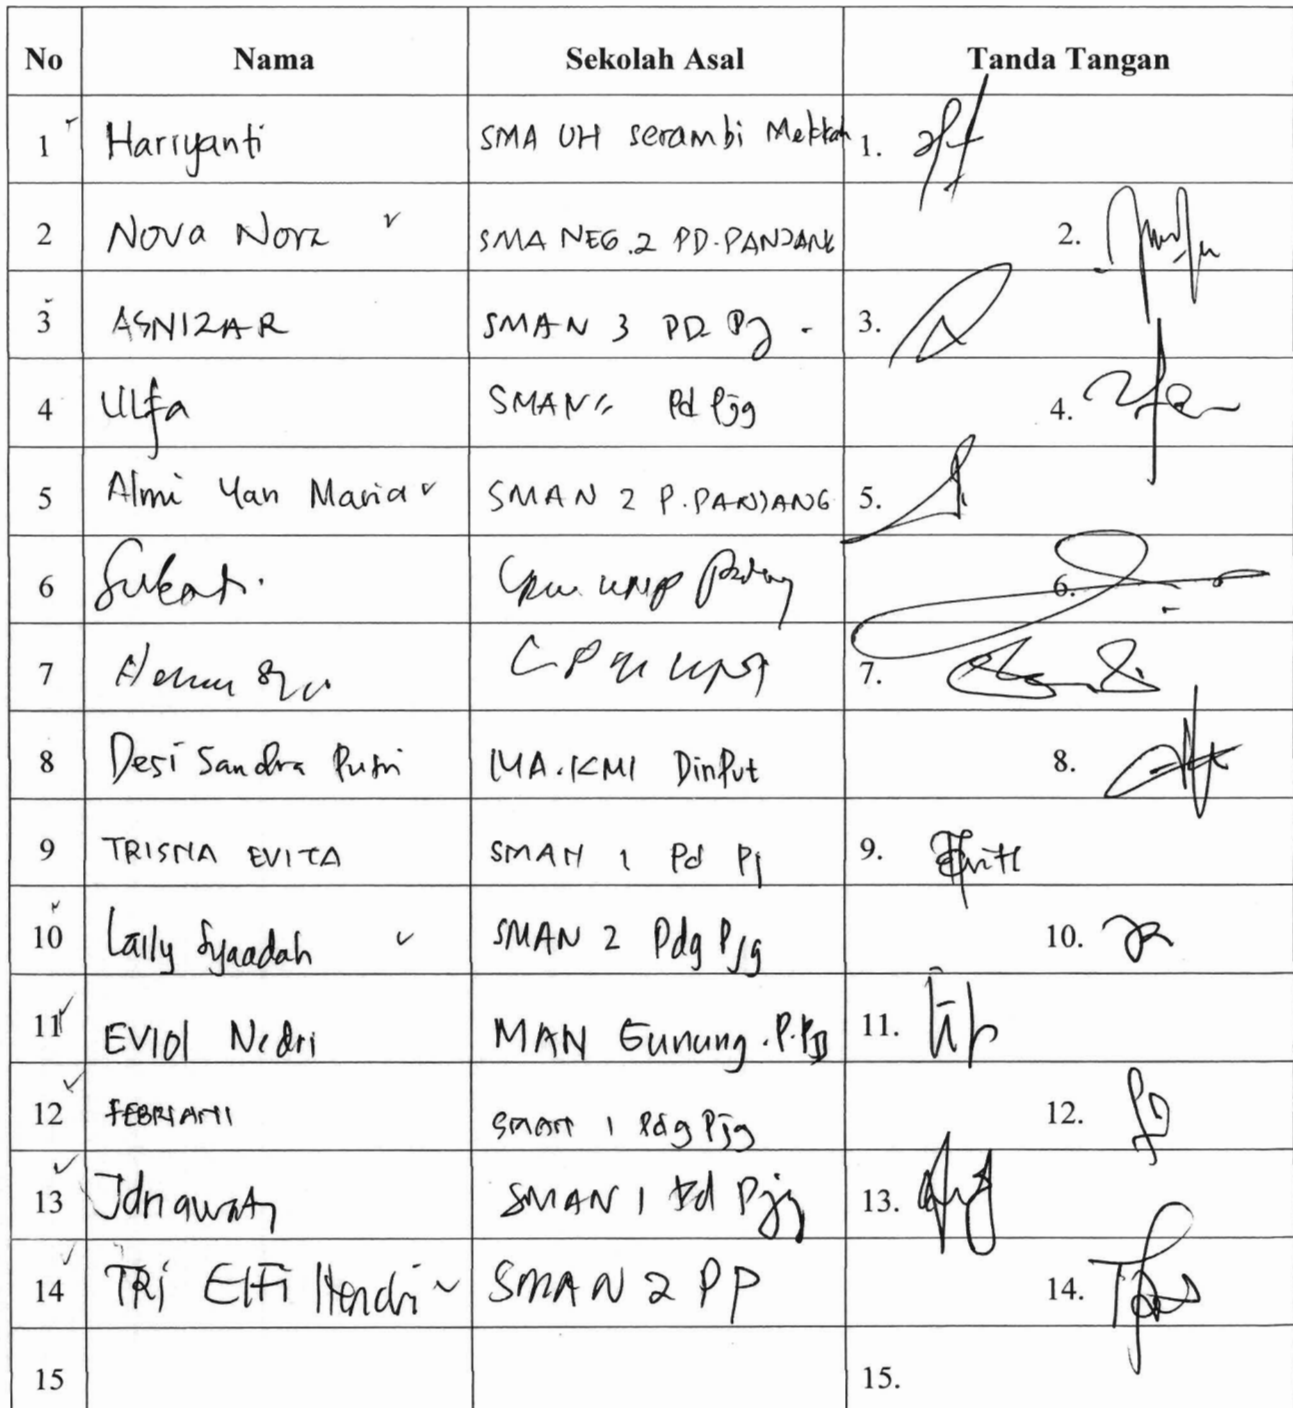 No Nama Sekolah Asal Tanda Tangan
1 Hariyanti SMA UH serambi Mekkah 1.
2 Nova Nora SMA NEG.2 PD.PANJANG 2.
3 ASNIZAR SMAN 3 PD Pj. 3.
4 Ulfa SMAN Pd Pjg 4.
5 Almi Yan Maria SMAN 2 P.PANJANG 5.
6 UNP Padang 6.
7 7.
8 Desi Sandra Putri MA.KMI DinPut 8.
9 TRISNA EVITA SMAN 1 Pd Pj 9.
10 Laily Syaadah SMAN 2 Pdg Pjg 10.
11 MAN Gunung 11.
12 FEBRIANI SMAN 1 Pdg Pjg 12.
13 SMAN 1 Pd Pjg 13.
14 TRI Elfi Hendri SMAN 2 PP 14.
15 15.